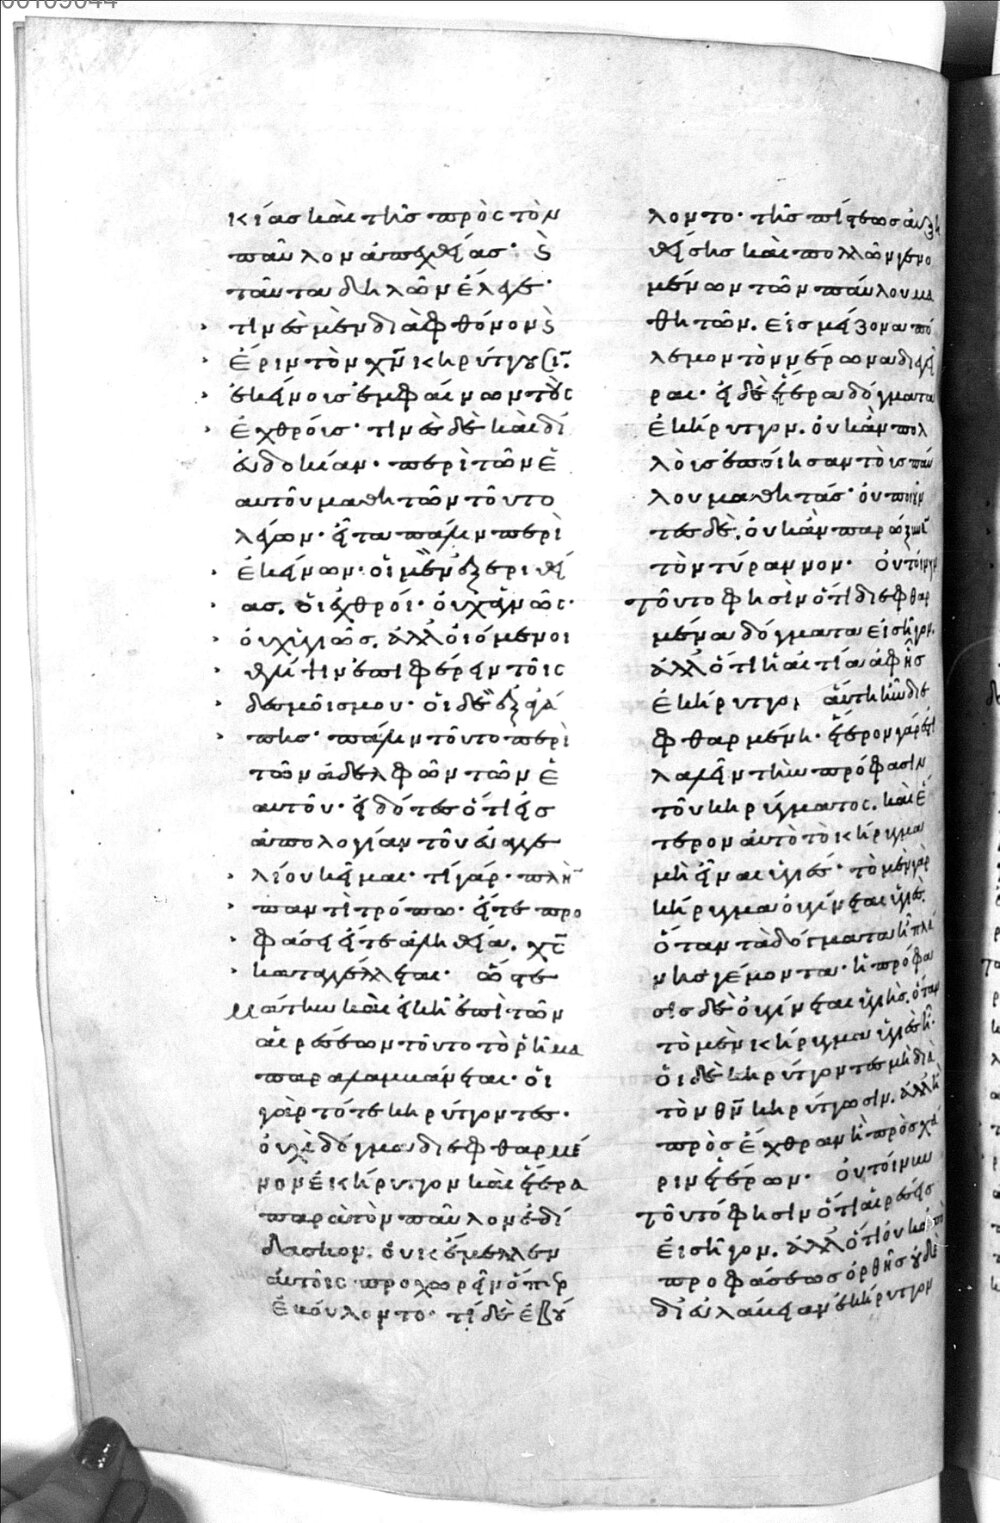 κίας καὶ τῆς πρὸς τὸν
παῦλον ἀπεχθείας· καὶ
ταῦτα δηλῶν ἔλεγε·
τινὲς μὲν διὰ φθόνον καὶ
ἔριν τὸν χν κηρύττουσιν.
ἐκείνοις ἐμφαίνων τοὺς
ἐχθρούς· τινὲς δὲ καὶ δι
εὐδοκίαν· περὶ τῶν ἑ
αυτοῦ μαθητῶν τοῦτο
λέγων· εἶτα πάλιν περὶ
ἐκείνων· οἱ μὲν ἐξ ἐριθεί
ας. οἱ ἐχθροί· οὐχ ἁγνῶς·
οὐχ ὑγιῶς. ἀλλ οἰόμενοι
θλίψιν ἐπιφέρειν τοῖς
δεσμοῖς μου· οἱ δὲ ἐξ ἀγά
πης· πάλιν τοῦτο περὶ
τῶν ἀδελφῶν τῶν ἑ
αυτοῦ· εἰδότες ὅτι εἰς
ἀπολογίαν τοῦ εὐαγγε
λίου κεῖμαι· τί γάρ· πλὴν
παντὶ τρόπω· εἴτε προ
φάσει εἴτε ἀληθεία. χς
καταγγέλλεται· ὥστε
μάτην καὶ εἰκῆ ἐπὶ τῶν
αἱρέσεων τοῦτο τὸ ῥῆμα
παραλαμβάνεται· οἱ
γὰρ τότε κηρύττοντες·
οὐχὶ δόγμα διεφθαρμέ
νον ἐκήρυττον καὶ ἕτερα
παρὰ τὸν παῦλον ἐδί
δασκον. οὐκ ἔμελλεν
αὐτοῖς προχωρεῖν ὅπερ
ἐβούλοντο· τί δὲ ἐβού
λοντο· τῆς πίστεως αὐξη
θείσης καὶ πολλῶν γενο
μένων τῶν παύλου μα
θητῶν. εἰς μείζονα πό
λεμον τὸν νέρωνα διεγεῖ
ραι· εἰ δὲ ἕτερα δόγματα
ἐκήρυττον. οὐκ ἂν πολ
λοὺς ἐποίησαν τοὺς παύ
λου μαθητάς· οὐ ποιοῦν
τες δὲ. οὐκ ἂν παρώξυναν
τὸν τύραννον· οὐ τοίνυν
τοῦτο φησὶν ὅτι διεφθαρ
μένα δόγματα εἰσῆγον.
ἀλλ ὅτι ἡ αἰτία ἀφ ἧς
ἐκήρυττον, αὕτη ἦν διε
φθαρμένη· ἕτερον γάρ ἐστι
λαβεῖν τὴν πρόφασιν
τοῦ κηρύγματος. καὶ ἕ
τερον αὐτὸ τὸ κήρυγμα
μὴ εἶναι ὑγιές· τὸ μὲν γὰρ
κήρυγμα οὐ γίνεται ὑγιές.
ὅταν τὰ δόγματα ἢ πλά
νης γέμοντα· ἡ πρόφα
σις δὲ οὐ γίνεται ὑγιής. ὅταν
τὸ μὲν κήρυγμα ὑγιὲς ἦ·
οἱ δὲ κηρύττοντες μὴ διὰ
τὸν θν κηρύττωσιν. ἀλλ ἢ
πρὸς ἔχθραν ἢ πρὸς χά
ριν ἑτέρων· οὐ τοίνυν
τοῦτό φησιν ὅτι αἱρέσεις
εἰσῆγον. ἀλλ ὅτι οὐκ ἀπὸ
προφάσεως ὀρθῆς οὐδὲ
δι εὐλάβειαν ἐκήρυττον